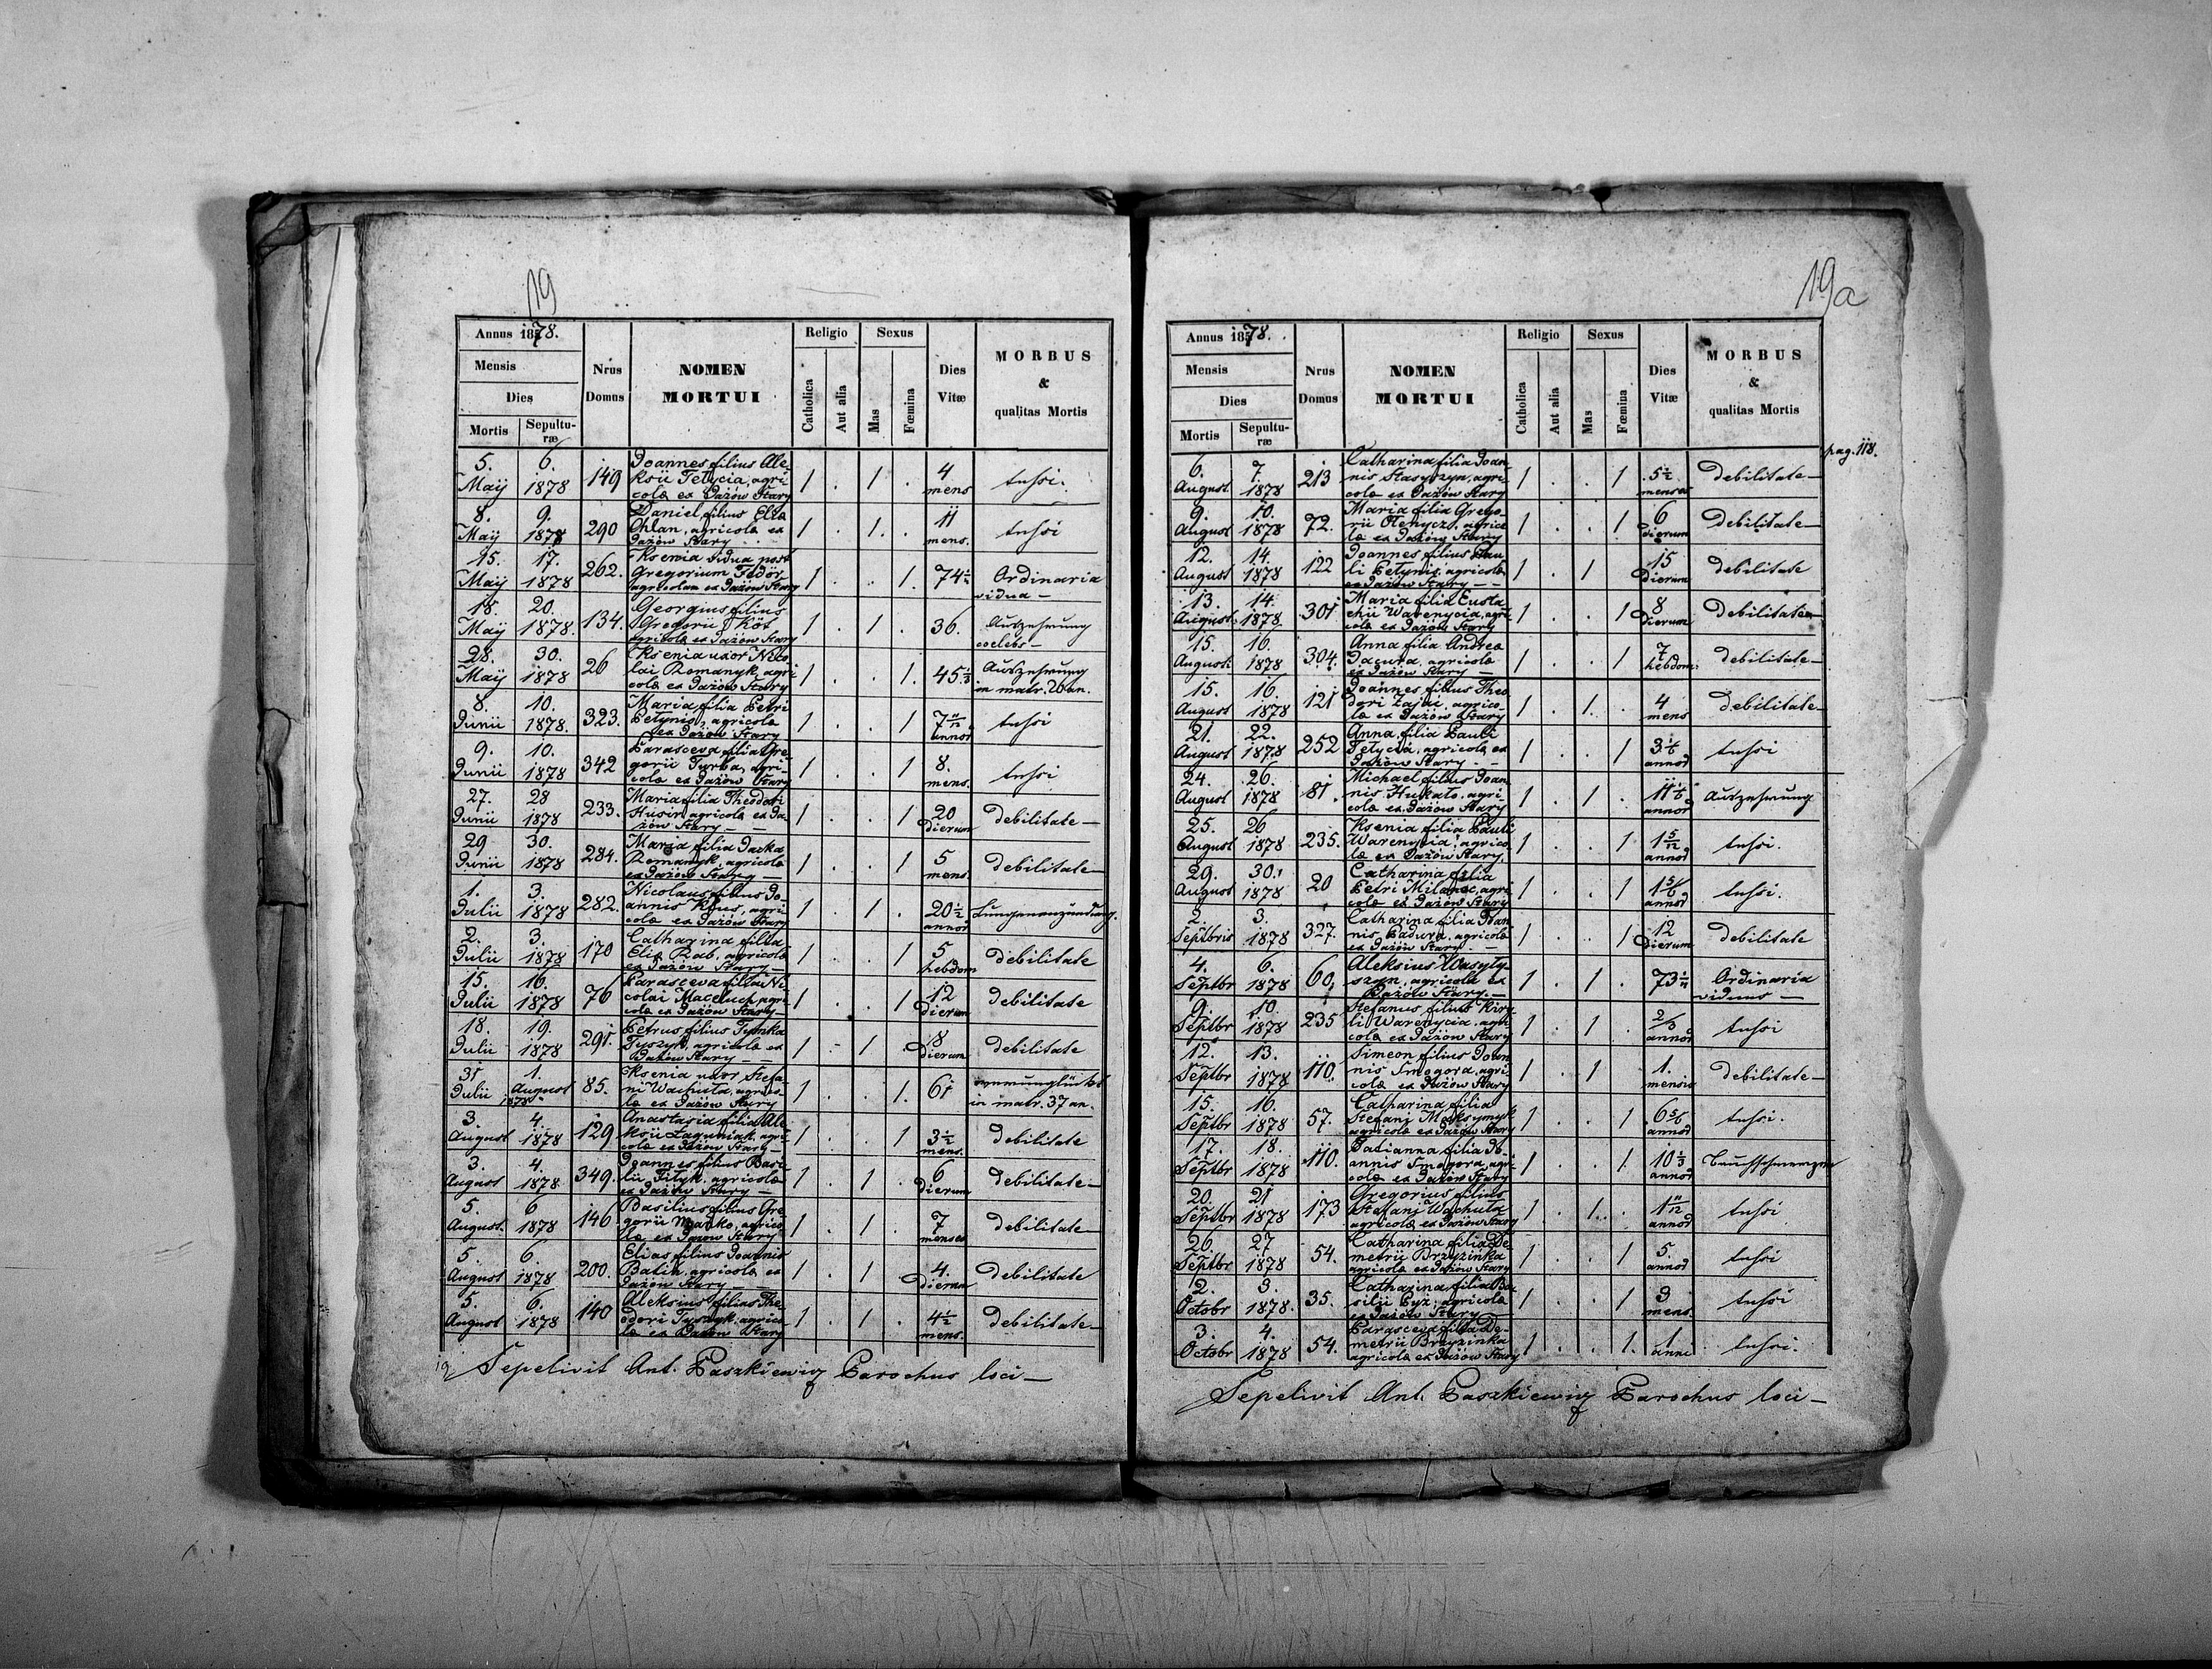 19
Annus 1878.
Mensis
Dies
Mortis
Sepulturæ
Nrus Domus
NOMEN MORTUI
Religio
Catholica
Aut alia
Sexus
Mas
Fœmina
Dies Vitæ
MORBUS & qualitas Mortis
5. Maij 6. 1878 149 Joannes filius Ale-
ksii Tetycia, agri-
colæ ex Jażów Stary 1 . 1 . 4 mens tussi.
8. Maij 9. 1878 290 Daniel filius Eliæ
Chlan, agricolæ ex
Jażów Stary 1 . 1. . 11 mens. tussi
15. Maij 17. 1878 262. Ksenia vidua post
Gregorium Fedór
agricolam ex Jażów Stary 1 . . 1. 74 Ordinaria
vidua —
18. Maij 20. 1878. 134. Georgius filius
Gregorii Kót
agricolæ ex Jażów Stary 1 . 1 . 36. Auszehrung
coelebs —
28. Maij 30. 1878 26 Ksenia uxor Nico-
lai Romanyk, agri-
colæ ex Jażów Stary 1 . . 1. 45 Auszehrung
in matr. 26 an.
8. Junii 10. 1878. 323. Maria filia Petri
Petynis, agricolæ
ex Jażów Stary 1 . . 1 7 11/12 annor tussi
9. Junii 10. 1878 342 Parasceva filia Gre-
gorii Turba, agri-
colæ ex Jażów Stary 1 . . 1 8. mens. tussi
27. Junii 28 1878 233. Maria filia Theodori
Husin, agricolæ ex Ja-
żów Stary — 1 . . 1 20 dierum debilitate —
29 Junii 30. 1878 284. Maria filia Jacka
Romanyk, agricolæ
ex Jażów Stary — 1 . . 1 5 mens. debilitate —
1. Julii 3. 1878 282. Nicolaus filius Jo-
annis Kłus, agri-
colæ ex Jażów Stary 1 . 1 . 20 1/2 annor Lungenenzündung.
2. Julii 3. 1878 170 Catharina filia
Eliæ Rab, agricolæ
ex Jażów Stary — 1 . . 1 5 hebdom debilitate
15. Julii 16. 1878 76 Parasceva filia Ni-
colai Maceluch, agri-
colæ ex Jażów Stary — 1 . . 1 12 dierum debilitate
18. Julii 19. 1878 291. Petrus filius Tymka
Tyszyk, agricolæ ex
Jażów Stary — 1 . 1 . 8 dierum debilitate
31 Julii 1. August 1878 85. Ksenia uxor Stefa-
ni Wachuta, agrico-
læ ex Jażów Stary 1 . . 1. 61 verunglückt
in matr. 37 an.
3. August 4. 1878 129 Anastasia filia Ale-
ksii Łaguniak, agri-
colæ ex Jażów Stary — 1 . . 1 3 1/2 mens. debilitate
3. August 4. 1878 349. Joannes filius Basi-
lii Fityk, agricolæ
ex Jażów Stary — 1 . 1 . 6 dierum debilitate —
5. August. 6 1878 146 Basilius filius Gre-
gorii Maćko, agrico-
læ ex Jażów Stary 1 . 1 . 7 menses debilitate
5. August 6. 1878 200. Elias filius Joannis
Batih, agricolæ ex
Jażów Stary — 1 . 1 4. dierum debilitate
5. August 6. 1878 140 Aleksius filius Theo-
dori Tyszyk, agrico-
læ ex Jażów Stary 1 . 1 . 4 1/2 mens. debilitate —
19 Sepelivit Ant. Paszkiewicz Parochus loci —
19a
Annus 1878.
Mensis
Dies
Mortis
Sepulturæ
Nrus Domus
NOMEN MORTUI
Religio
Catholica
Aut alia
Sexus
Mas
Fœmina
Dies Vitæ
MORBUS & qualitas Mortis
pag. 118.
6. August. 7. 1878 213 Catharina filia Joan-
nis Stasyszyn, agri-
colæ ex Jażów Stary 1 . . 1 5 1/2 menses debilitate —
9. August 10. 1878 72. Maria filia Grego-
rii Olenycz, agrico-
læ ex Jażów Stary 1 . . 1 6 dierum debilitate —
12. August 14. 1878 122 Joannes filius Pau-
li Petynis, agricolæ
ex Jażów Stary — 1 . 1 15 dierum debilitate
13. August. 14. 1878 301 Maria filia Eusta-
chii Warenycia, agri-
colæ ex Jażów Stary 1 . . 1 8 dierum debilitate —
15. Augusti 16. 1878 304. Anna filia Andreæ
Jacura, agricolæ
ex Jażów Stary — 1 . . 1 7 hebdom. debilitate —
15. August 16. 1878 121 Joannes filius Theo-
dori Zajái, agrico-
læ ex Jażów Stary 1 . 1. . 4 mens debilitate —
21. August 22. 1878 252 Anna filia Pauli
Tetycia, agricolæ ex
Jażów Stary — 1 . . 1 3 1/6 annor tussi
24. August 26. 1878 81. Michael filius Joan-
nis Hukało, agri-
colæ ex Jażów Stary 1 . 1 . 11 1/6 annor Auszehrung
25. August 26 1878 235. Ksenia filia Pauli
Warenycia, agrico-
læ ex Jażów Stary. 1 . . 1 1 5/12 annor tussi.
29. August 30. 1878 20 Catharina filia
Petri Milanec, agri-
colæ ex Jażów Stary 1 . . 1 1 5/6 annor tussi.
2. Septbris 3. 1878 327. Catharina filia Joan-
nis Badura, agricolæ
ex Jażów Stary. — 1 . . 1 12 dierum debilitate
4. Septbr 6. 1878 60. Aleksius Wasyty-
szyn, agricola ex
Jażów Stary. — 1 . 1 . 73 Ordinaria
viduus —
9. Septbr 10. 1878 235 Stefanus filius Kiry-
li Warenycia, agri-
colæ ex Jażów Stary 1 . 1 . 2/3 annor tussi
12. Septbr 13. 1878 110. Simeon filius Joan-
nis Smogora, agri-
colæ ex Jażów Stary 1 . 1 1. mensis debilitate —
15. Septbr 16. 1878 57. Catharina filia
Stefani Maksymyk
agricolæ ex Jażów Stary 1 . . 1 6 5/6 annor tussi.
17. Septbr 18. 1878 110. Tatianna filia Jo-
annis Smogora, agri-
colæ ex Jażów Stary 1 . . 1. 10 1/3 annor Bauchschmerzen
20. Septbr 21 1878 173 Gregorius filius
Stefani Wachuta
agricolæ ex Jażów Stary 1 . 1. . 1 11/12 annor tussi
26. Septbr 27 1878 54. Catharina filia De-
metrii Brzyzinka
agricolæ ex Jażów Stary 1 . . 1 5. annor tussi
2. Octobr 3. 1878. 35. Catharina filia Ba-
silii Pyz, agricolæ
ex Jażów Stary 1 . . 1 9 mens. tussi
3. Octobr 4. 1878 54. Parasceva filia De-
metrii Brzyzinka
agricolæ ex Jażów Stary 1 . . 1. 1 anni tussi.
Sepelivit Ant. Paszkiewicz Parochus loci —